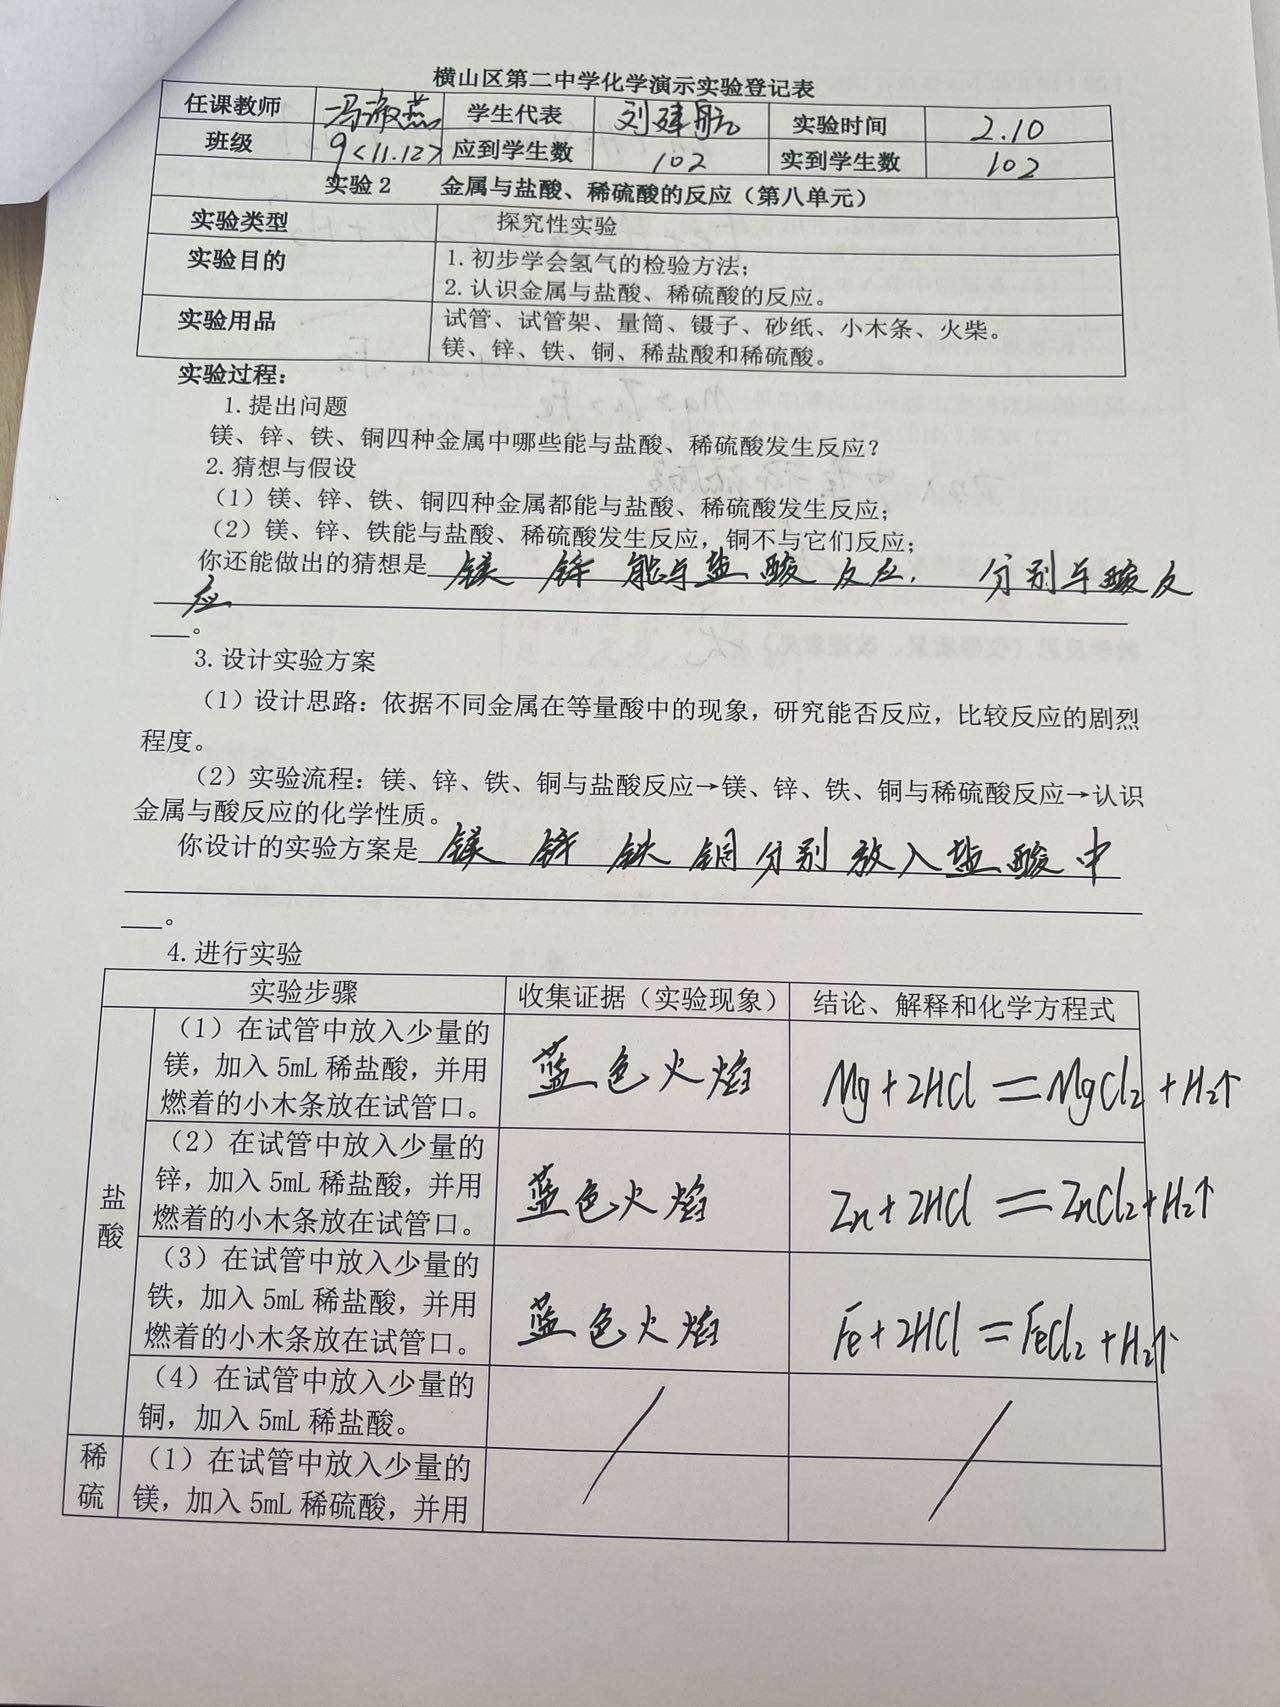 横山区第二中学化学演示实验登记表
任课教师 冯淑燕 学生代表 刘建航 实验时间 2.10
班级 9<11.12> 应到学生数 102 实到学生数 102
实验2 金属与盐酸、稀硫酸的反应（第八单元）
实验类型 探究性实验
实验目的 1.初步学会氢气的检验方法；
2.认识金属与盐酸、稀硫酸的反应。
实验用品 试管、试管架、量筒、镊子、砂纸、小木条、火柴。
镁、锌、铁、铜、稀盐酸和稀硫酸。
实验过程：
1.提出问题
镁、锌、铁、铜四种金属中哪些能与盐酸、稀硫酸发生反应？
2.猜想与假设
（1）镁、锌、铁、铜四种金属都能与盐酸、稀硫酸发生反应；
（2）镁、锌、铁能与盐酸、稀硫酸发生反应，铜不与它们反应；
你还能做出的猜想是 镁 锌 能与盐酸反应. 分别与酸反
应
。
3.设计实验方案
（1）设计思路：依据不同金属在等量酸中的现象，研究能否反应，比较反应的剧烈
程度。
（2）实验流程：镁、锌、铁、铜与盐酸反应→镁、锌、铁、铜与稀硫酸反应→认识
金属与酸反应的化学性质。
你设计的实验方案是 镁 锌 铁 铜分别放入盐酸中
。
4.进行实验
实验步骤 收集证据（实验现象） 结论、解释和化学方程式
盐酸
（1）在试管中放入少量的
镁，加入5mL稀盐酸，并用
燃着的小木条放在试管口。
蓝色火焰 Mg+2HCl=MgCl₂+H₂↑
（2）在试管中放入少量的
锌，加入5mL稀盐酸，并用
燃着的小木条放在试管口。
蓝色火焰 Zn+2HCl=ZnCl₂+H₂↑
（3）在试管中放入少量的
铁，加入5mL稀盐酸，并用
燃着的小木条放在试管口。
蓝色火焰 Fe+2HCl=FeCl₂+H₂↑
（4）在试管中放入少量的
铜，加入5mL稀盐酸。
/ /
稀硫
（1）在试管中放入少量的
镁，加入5mL稀硫酸，并用